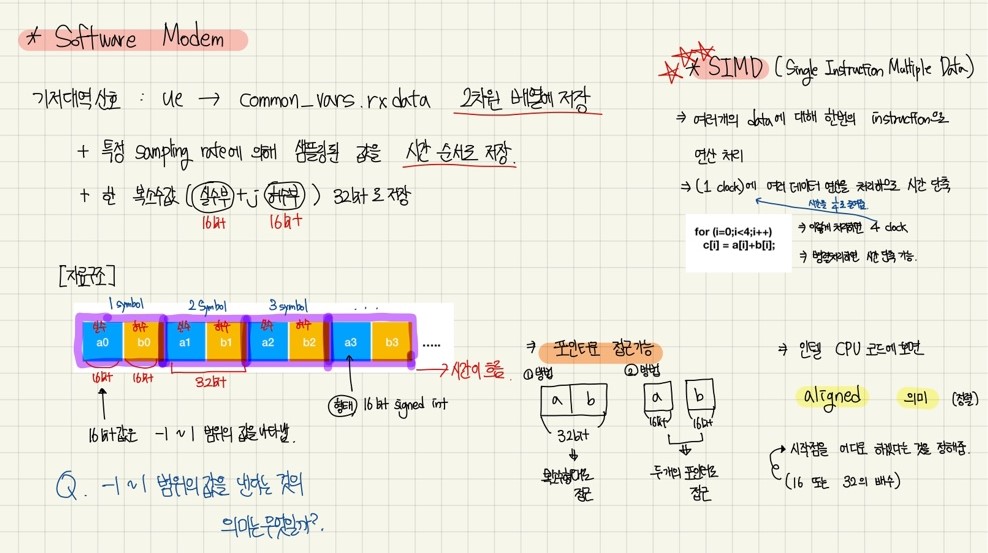 * Software Modem
기저대역신호 : ue → common_vars.rxdata 2차원 배열에 저장
+ 특정 sampling rate에 의해 샘플링된 값을 시간 순서로 저장.
+ 한 복소수값 ((실수부)+j(허수부)) 32bit로 저장
16bit 16bit
[자료구조]
1 symbol 2 symbol 3 symbol . . .
실수 허수 실수 허수 실수 허수
a0 b0 a1 b1 a2 b2 a3 b3 .....
→ 시간이 흐름.
16bit 16bit 32bit
형태 16bit signed int
16bit값은 -1 ~ 1 범위의 값을 나타냄.
Q. -1 ~ 1 범위의 값을 낸다는 것의
의미는 무엇일까?.
* SIMD (Single Instruction Multiple Data)
⇒ 여러개의 data에 대해 한번의 instruction으로
연산 처리
⇒ (1 clock)에 여러 데이터 연산을 처리하므로 시간 단축
시간을 1/4로
for (i=0;i<4;i++)
c[i] = a[i]+b[i];
⇒ 이렇게 처리하면 4 clock
⇒ 병렬처리하면 시간 단축 가능.
⇒ 포인터로 접근가능
① 방법 ② 방법
a b a b
32bit 16bit 16bit
복소수형태로
접근
두개의 포인터로
접근
⇒ 인텔 CPU 코드에 보면
aligned 의미 (정렬)
→ 시작점을 어디로 하겠다는 것을 정해줌.
(16 또는 32의 배수)